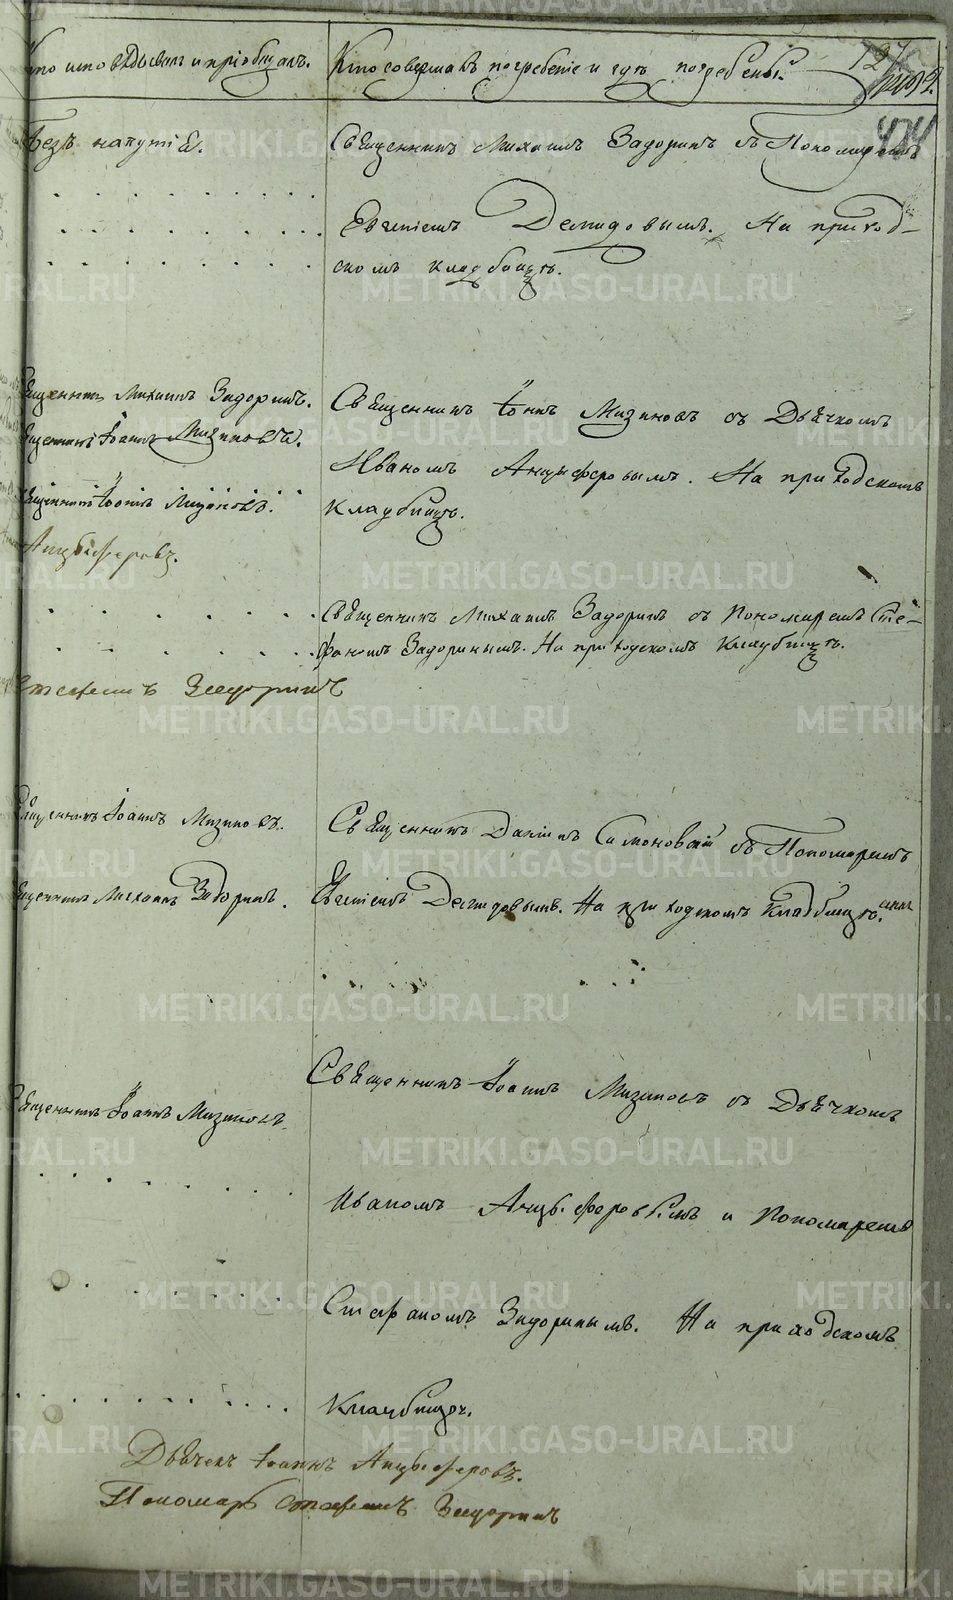 Кто исповѣдывалъ и пріобщалъ.
Кто совершалъ погребеніе и гдѣ погребены.
474
Безъ напутія.
Священникъ Михаилъ Задоринъ съ Пономаремъ
Евгеніемъ Демидовымъ. На приход-
скомъ кладбищѣ.
Священникъ Михаилъ Задоринъ.
Священникъ Іоаннъ Мизиновъ.
Священникъ Іоаннъ Мизиновъ.
Анцыферовъ.
Священникъ Іоаннъ Мизиновъ съ Дьячкомъ
Иваномъ Анцыферовымъ. На приходскомъ
Кладбищѣ.
Священникъ Михаилъ Задоринъ съ Пономаремъ Сте-
фаномъ Задоринымъ. На приходскомъ Кладбищѣ.
Стефанъ Задоринъ
Священникъ Іоаннъ Мизиновъ.
Священникъ Михаилъ Задоринъ.
Священникъ Даніилъ Симоновскій съ Пономаремъ
Евгеніемъ Демидовымъ. На приходскомъ Кладбищѣ.
Священникъ Іоаннъ Мизиновъ.
Священникъ Іоаннъ Мизиновъ съ Дьячкомъ
Иваномъ Анцыферовымъ и Пономаремъ
Стефаномъ Задоринымъ. На приходскомъ
Кладбищѣ.
Дьячекъ Іоаннъ Анцыферовъ.
Пономарь Стефанъ Задоринъ
METRIKI.GASO-URAL.RU